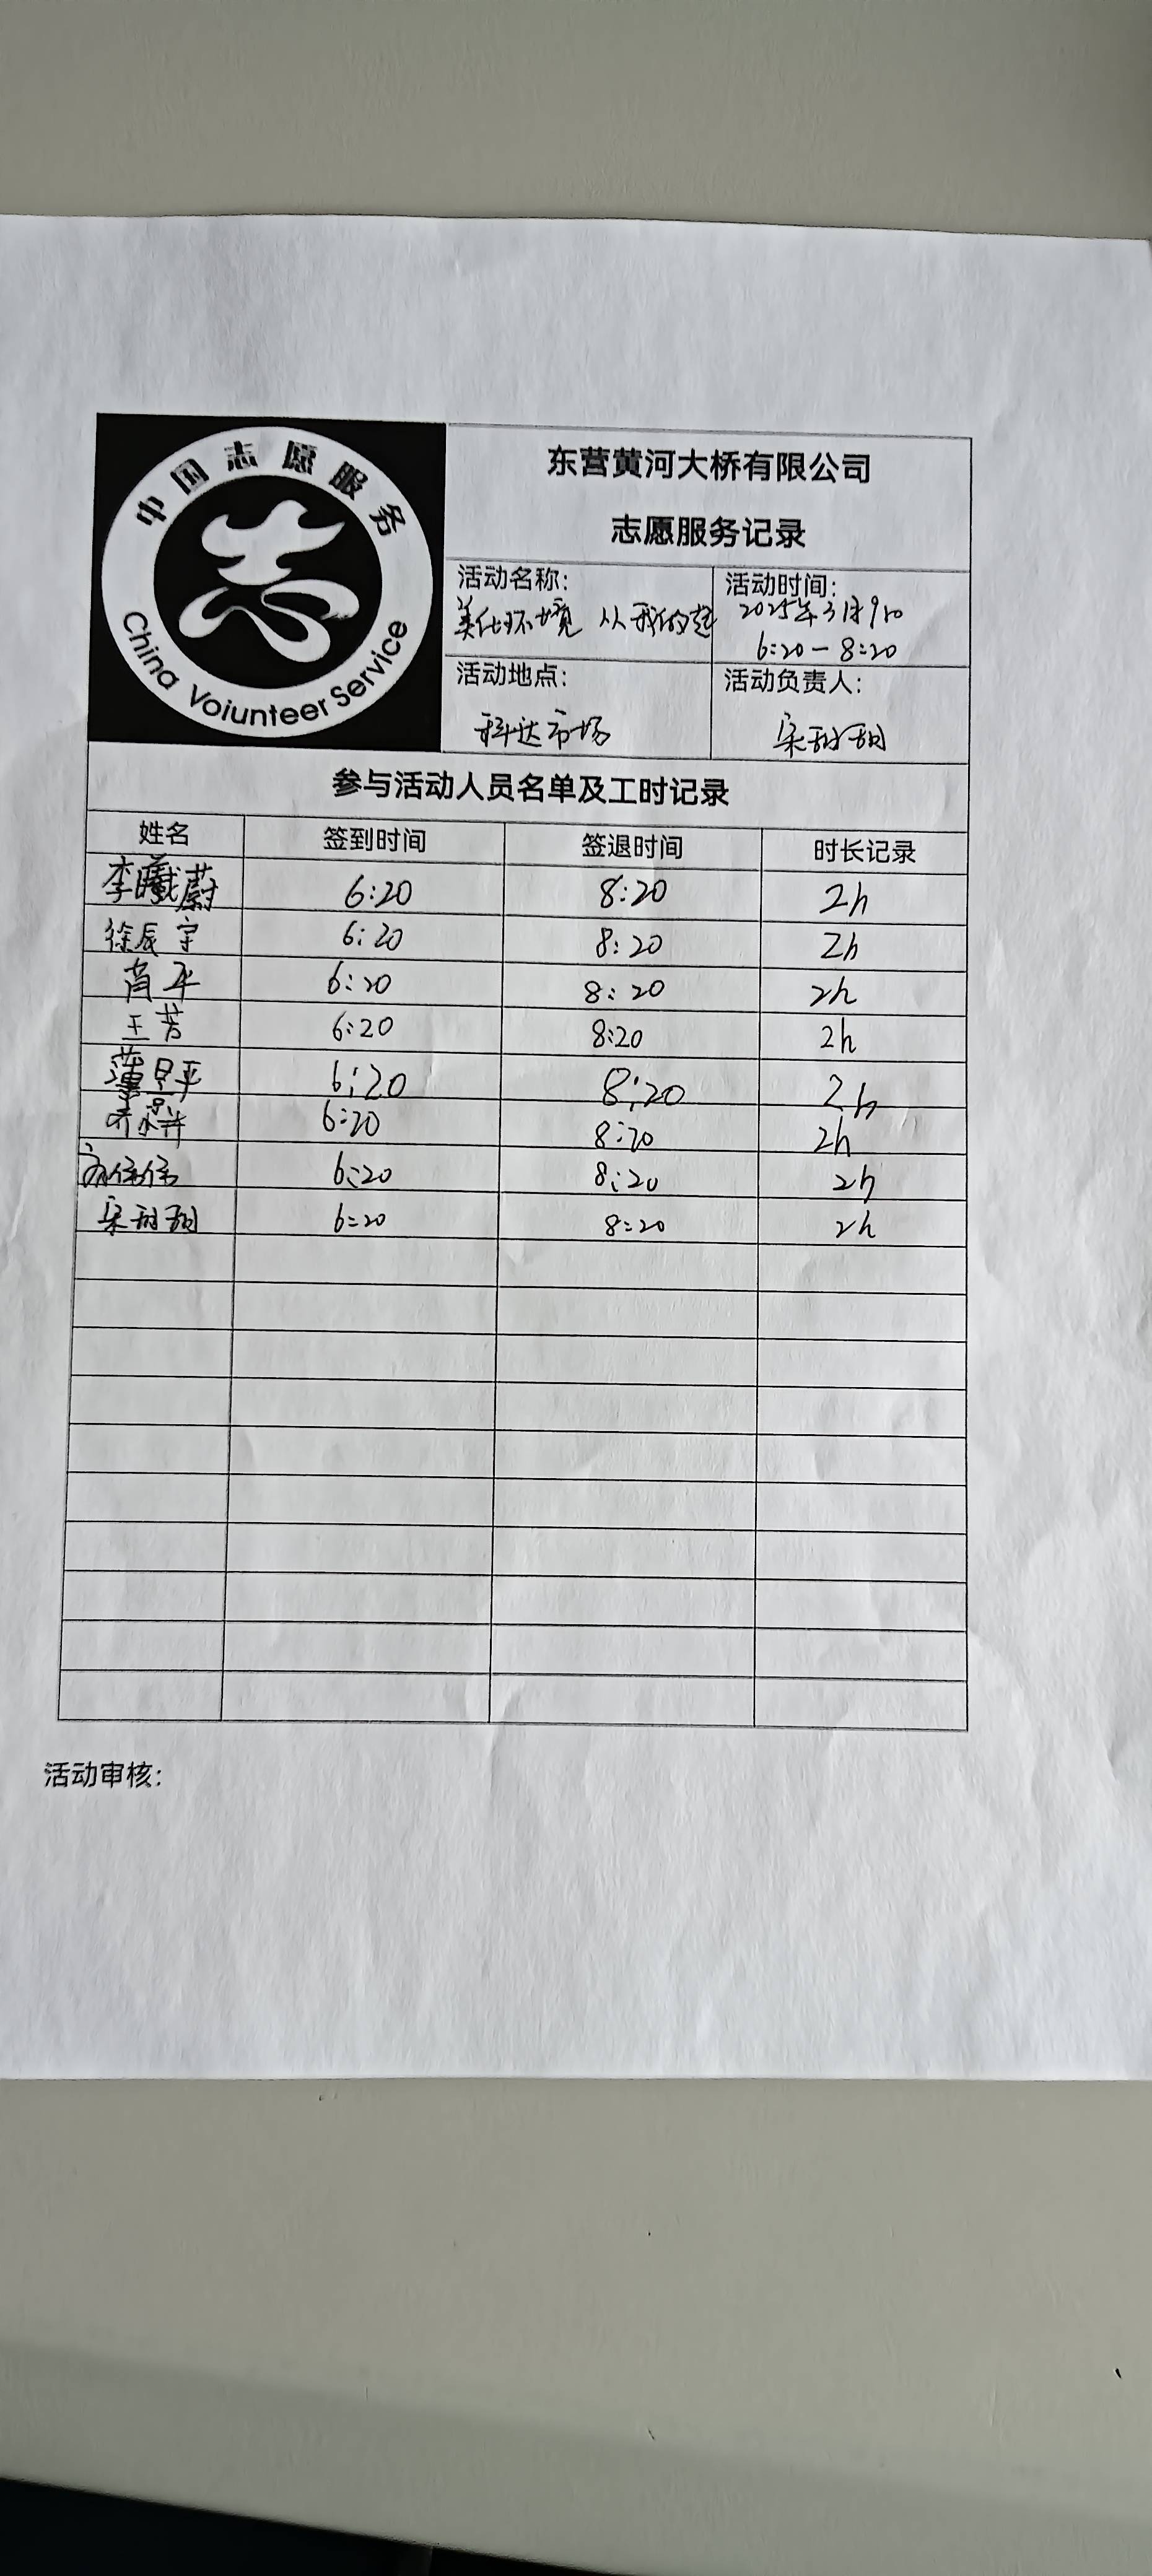 中国志愿服务
China Voiunteer Service
东营黄河大桥有限公司
志愿服务记录
活动名称：
美化环境 从我做起
活动时间：
2025年3月9日
6:20-8:20
活动地点：
科达市场
活动负责人：
宋甜甜
参与活动人员名单及工时记录
姓名 签到时间 签退时间 时长记录
李曦蔚 6:20 8:20 2h
徐辰宇 6:20 8:20 2h
肖平 6:20 8:20 2h
王芳 6:20 8:20 2h
薄昊平 6:20 8:20 2h
6:20 8:20 2h
6:20 8:20 2h
宋甜甜 6:20 8:20 2h
活动审核：